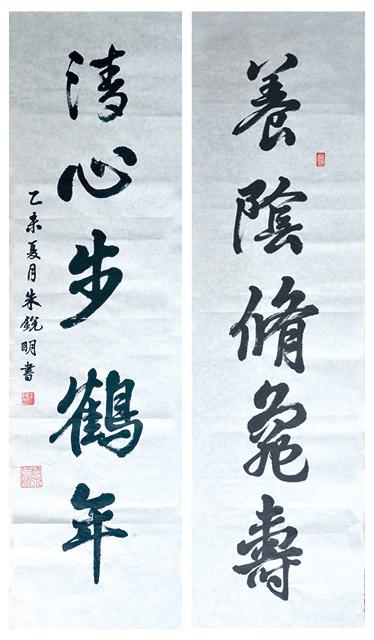 養陰脩龜壽
清心步鶴年
乙未夏月朱銳明書